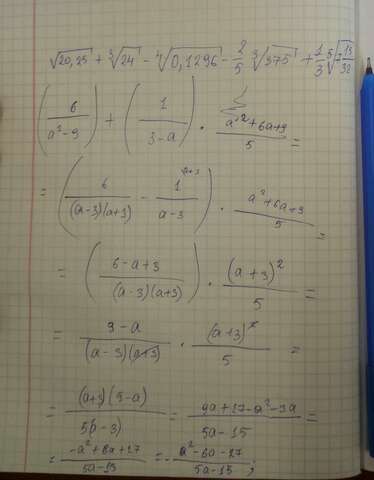 √20,25 + ∛24 - ∜0,1296 - 2/5 ∛375 + 1/3 ⁵√7 19/32
(6/(a²-9)) + (1/(3-a)) · (a²+6a+9)/5 =
= (6/((a-3)(a+3)) - 1^(a+3)/(a-3)) · (a²+6a+9)/5 =
= ((6-a+3)/((a-3)(a+3))) · (a+3)²/5 =
= (9-a)/((a-3)(a+3)) · (a+3)²/5 =
= (a+3)(9-a)/(5(a-3)) = (9a+27-a²-3a)/(5a-15) =
= (-a²+6a+27)/(5a-15) = -(a²-6a-27)/(5a-15);